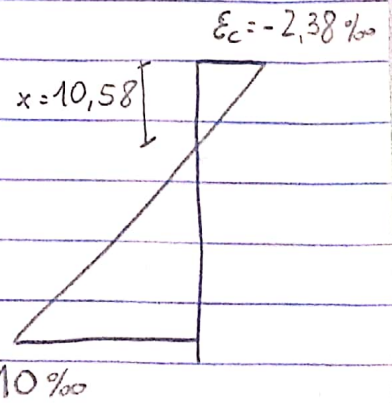 εc=-2,38‰
x=10,58
10‰